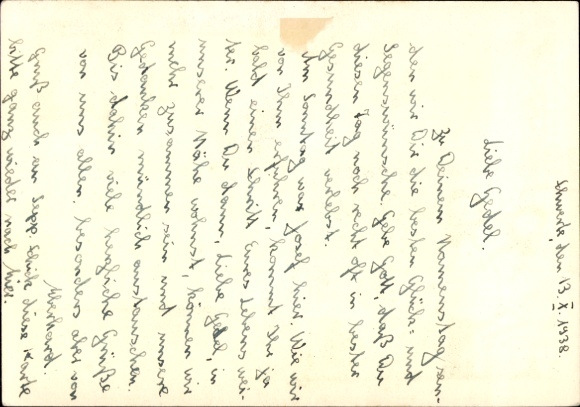 Schwerte, den 13. X. 1938.
Liebe Gedel.
Zu Deinem Namenstag sen-
den wir Dir die besten Glück- und
Segenswünsche. Gebe Gott, daß Du
diesen Tag noch recht oft in bester
Gesundheit verlebst.
Am Sonntag war Josef hier. Wie wir
von Ihm erfuhren, kommt Ihr ja
bald einen Schritt Eures Lebens wei-
ter. Wenn Du dann, liebe Gedel, in
unserer Nähe wohnst, können wir
mehr zusammen sein und unsere
Gedanken mündlich austauschen.
Bis dahin viele herzliche Grüße
von uns allen. besonders aber von
Eberhard.
Gruß auch an Sepp. Schick diese Karte
bitte ganz wieder nach hier.